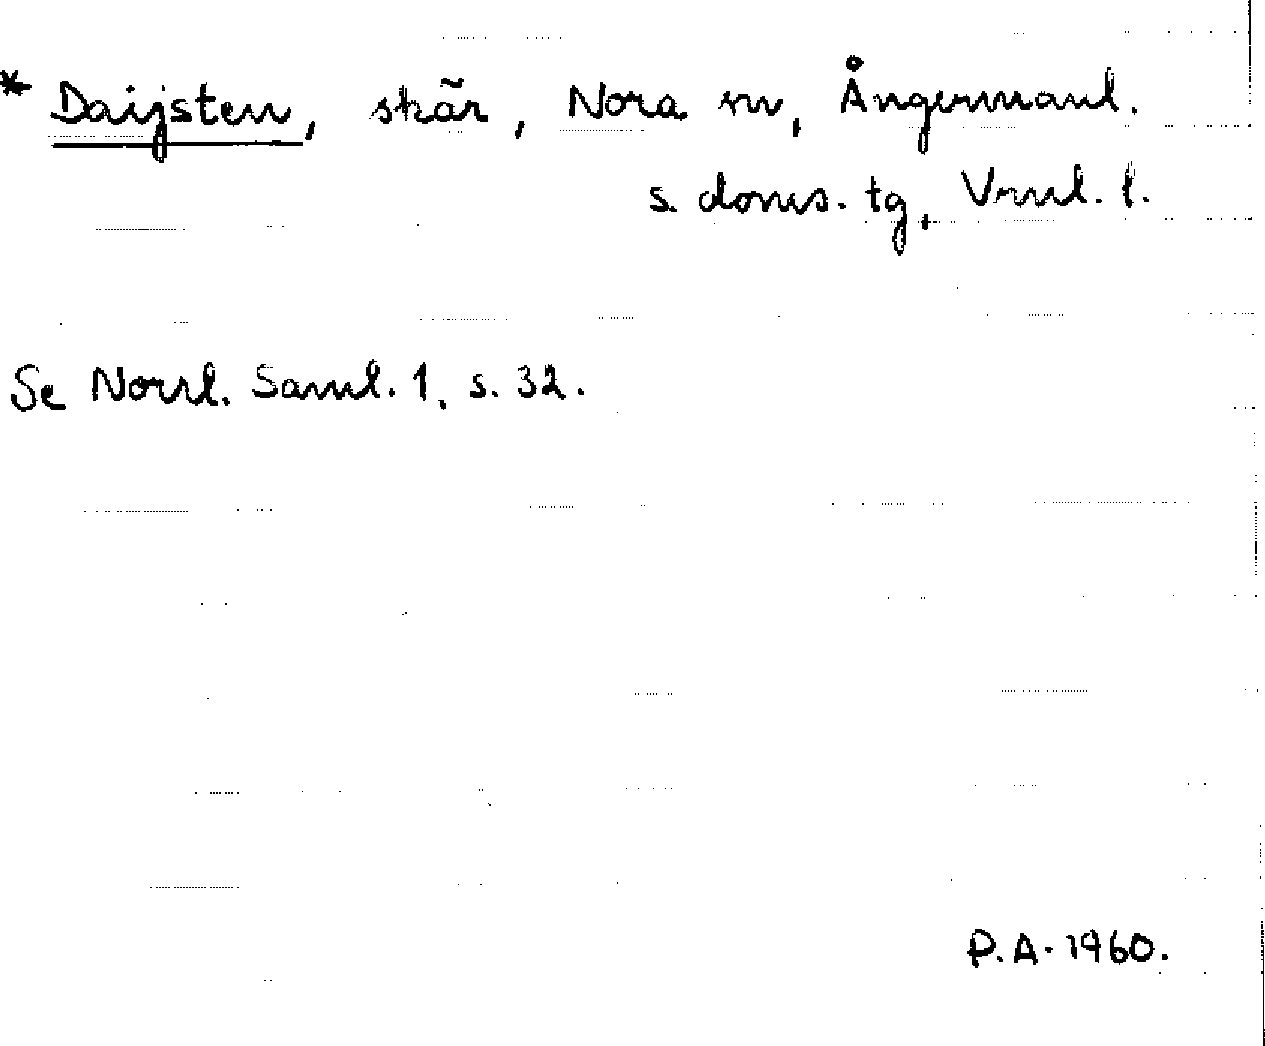 * Daijsten, skär, Nora sn, Ångermanl.
s. doms. tg, Vrnl. l.
Se Norrl. Saml. 1, s. 32.
P.A. 1960.